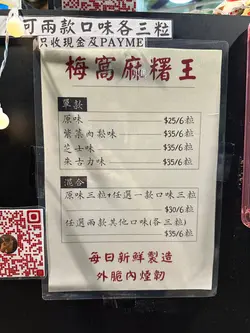 可兩款口味各三粒
只收現金及PAYME
梅窩麻糬王
單款
原味 $25/6粒
紫菜肉鬆味 $35/6粒
芝士味 $35/6粒
朱古力味 $35/6粒
混合
原味三粒+任選一款口味三粒
$30/6粒
任選兩款其他口味(各三粒)
$35/6粒
每日新鮮製造
外脆內煙韌